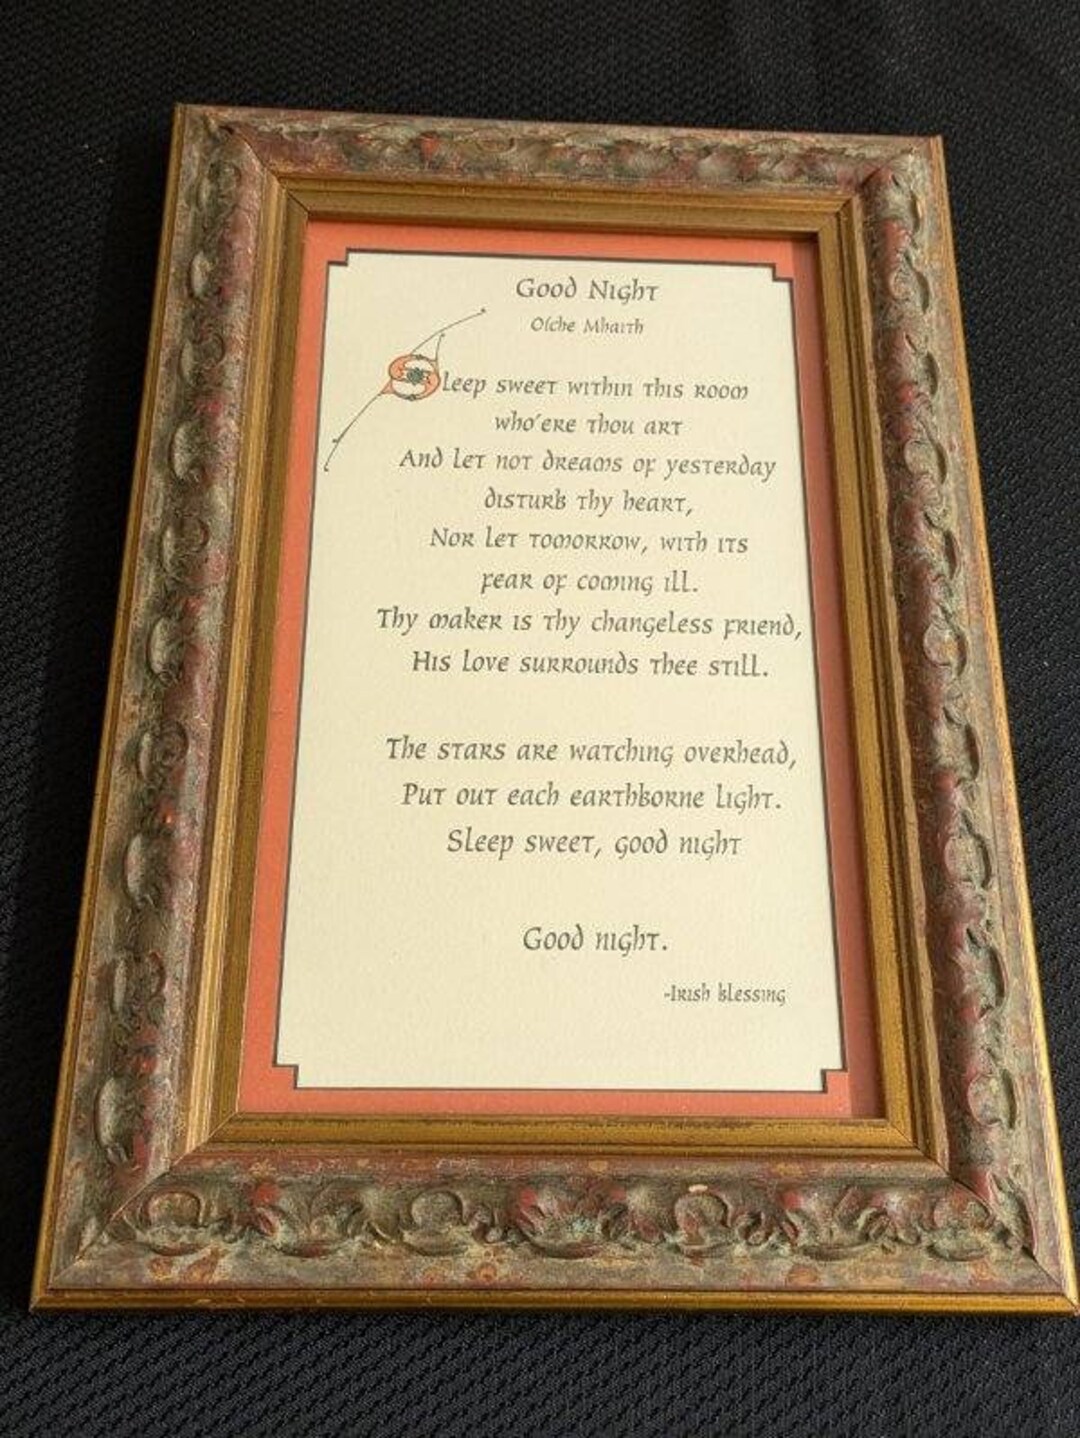 Good Night
Oíche Mhaith
Sleep sweet within this room
who'ere thou art
And let not dreams of yesterday
disturb thy heart,
Nor let tomorrow, with its
fear of coming ill.
Thy maker is thy changeless friend,
His love surrounds thee still.
The stars are watching overhead,
Put out each earthborne light.
Sleep sweet, good night
Good night.
-Irish blessing